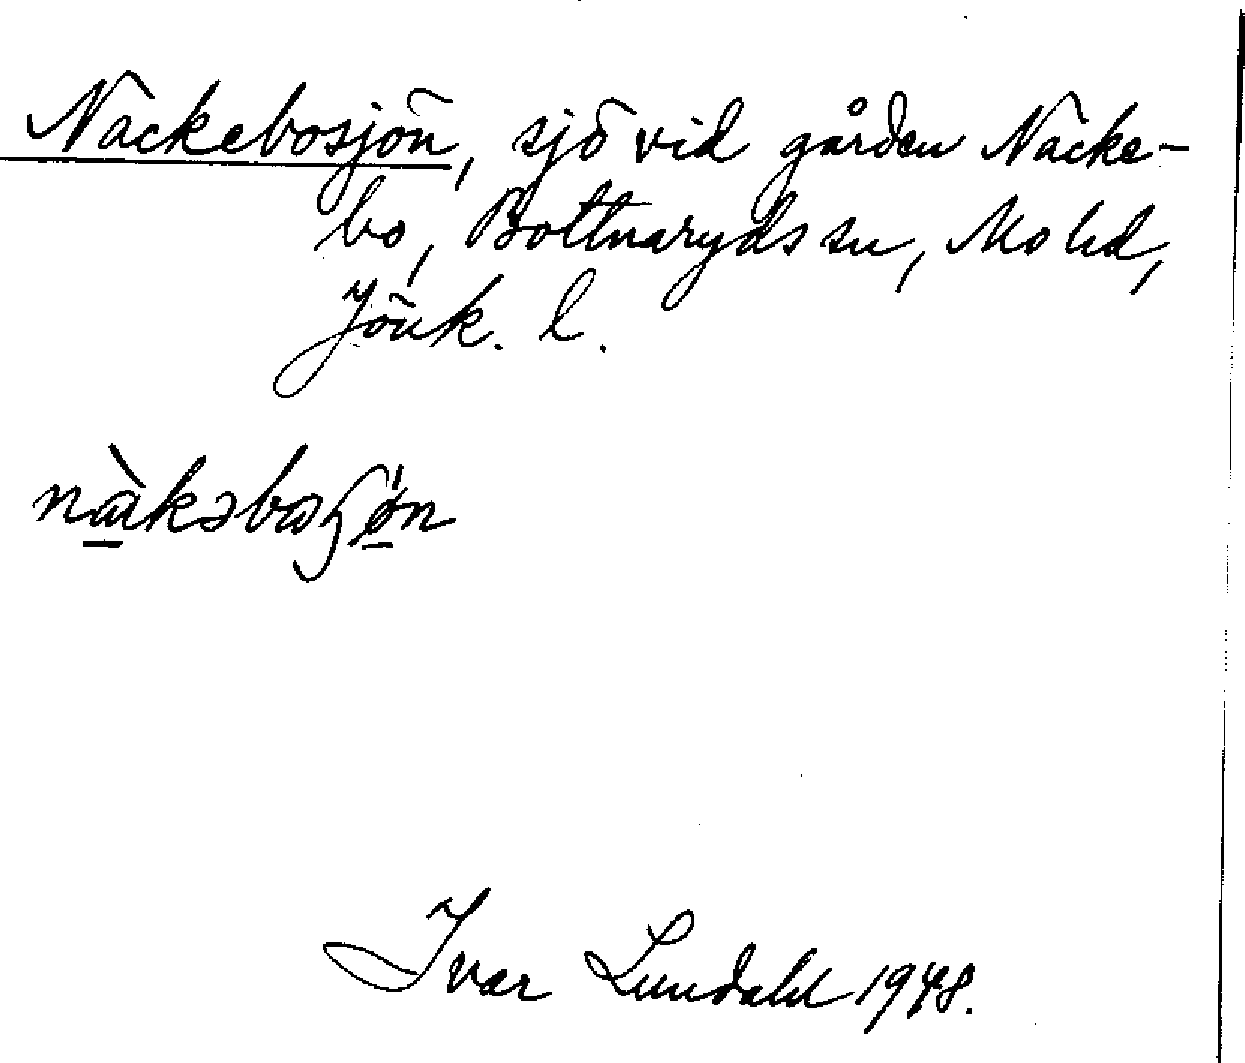 Näckebosjön, sjö vid gården Näcke-
bo, Bottnaryds sn, Mo hd,
Jönk. l.
Ivar Lundahl 1948.